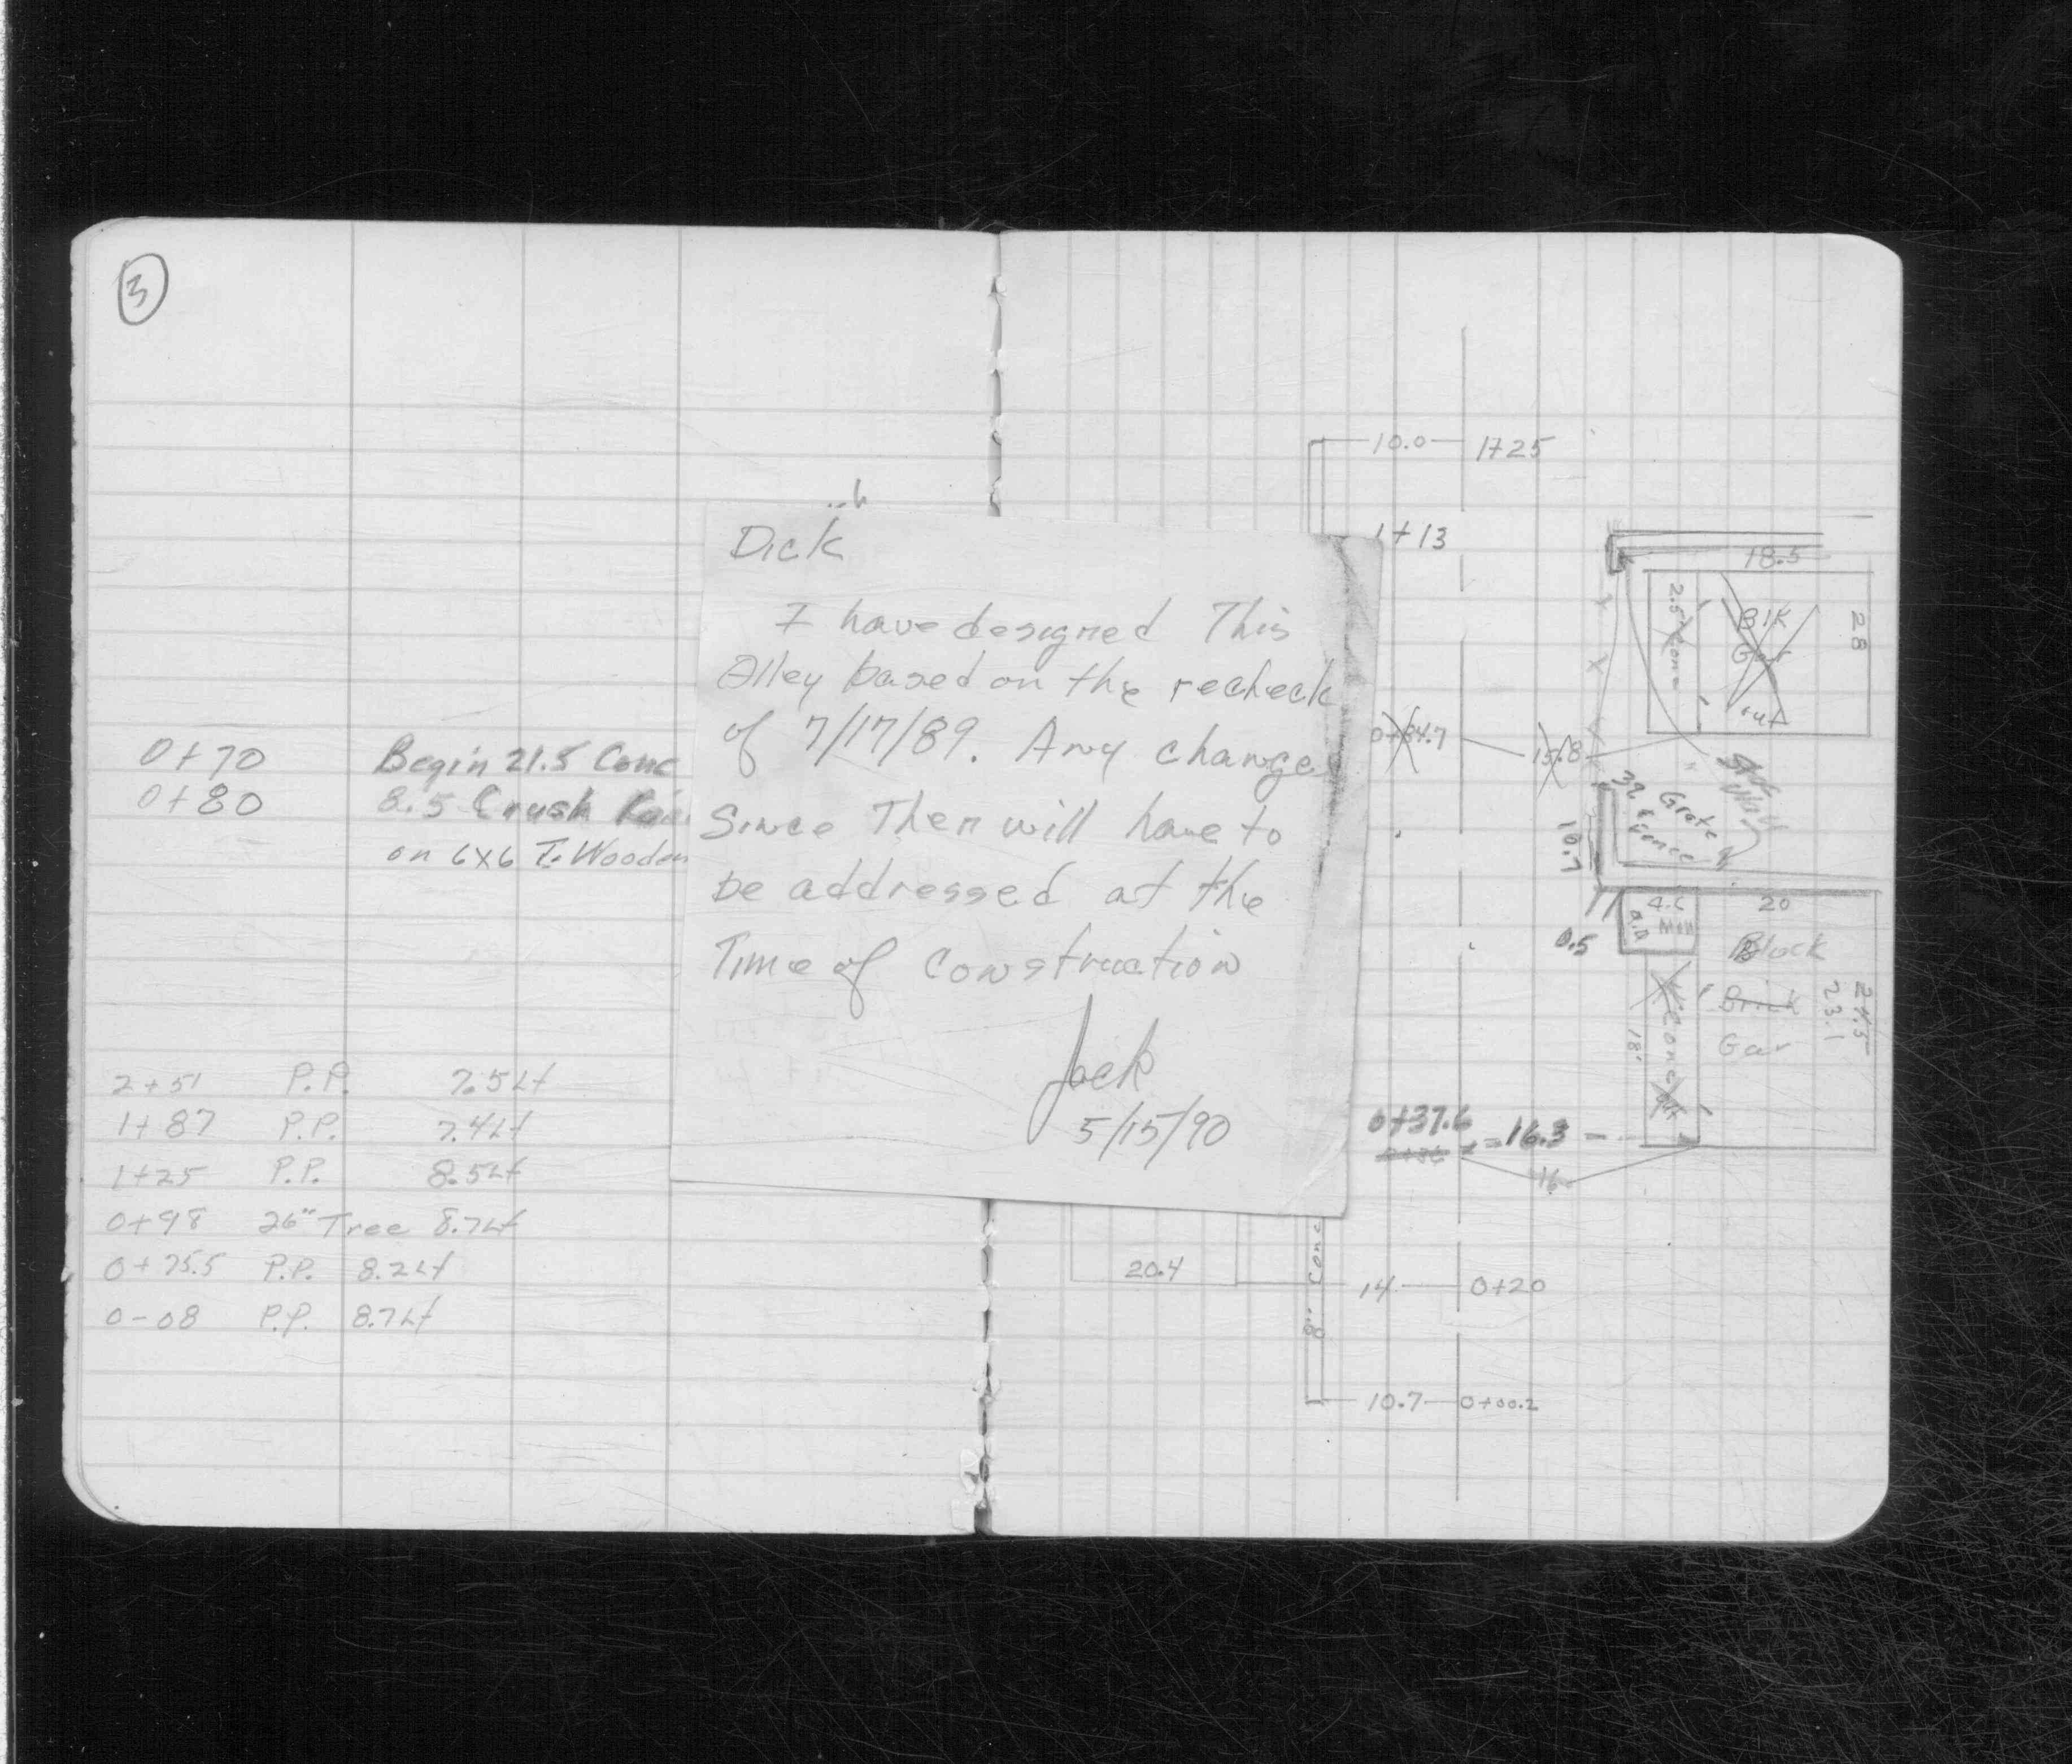 3
0+70 Begin 21.5 Conc
0+80 8.5 Crush
on 6x6 T. Wooden
2+51 P.P. 7.5 Lt
1+87 P.P. 7.4 Lt
1+25 P.P. 8.5 Lt
0+98 26" Tree 8.7 Lt
0+75.5 P.P. 8.2 Lt
0-08 P.P. 8.7 Lt
Dick
I have designed This
Alley based on the recheck
of 7/17/89. Any changes
Since Then will have to
be addressed at the
Time of Construction
Jack
5/15/90
10.0 1+25
1+13
18.5
2.5 Conc
Blk
Gar
28
0+84.7 15.8
32
Grate
fence
10.7
20
0.5
Block
Brick
Gar
24.5
23.1
Conc
18'
0+37.6
16.3
16
20.4
8' Conc
14 0+20
10.7 0+00.2